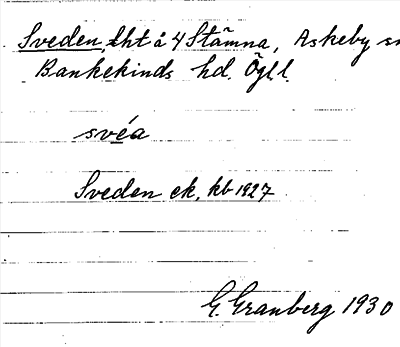 Sveden, lht å 4 Stämna, Askeby sn
Bankekinds hd. Ögl l.
svéa
Sveden ek, kb 1927
G. Granberg 1930